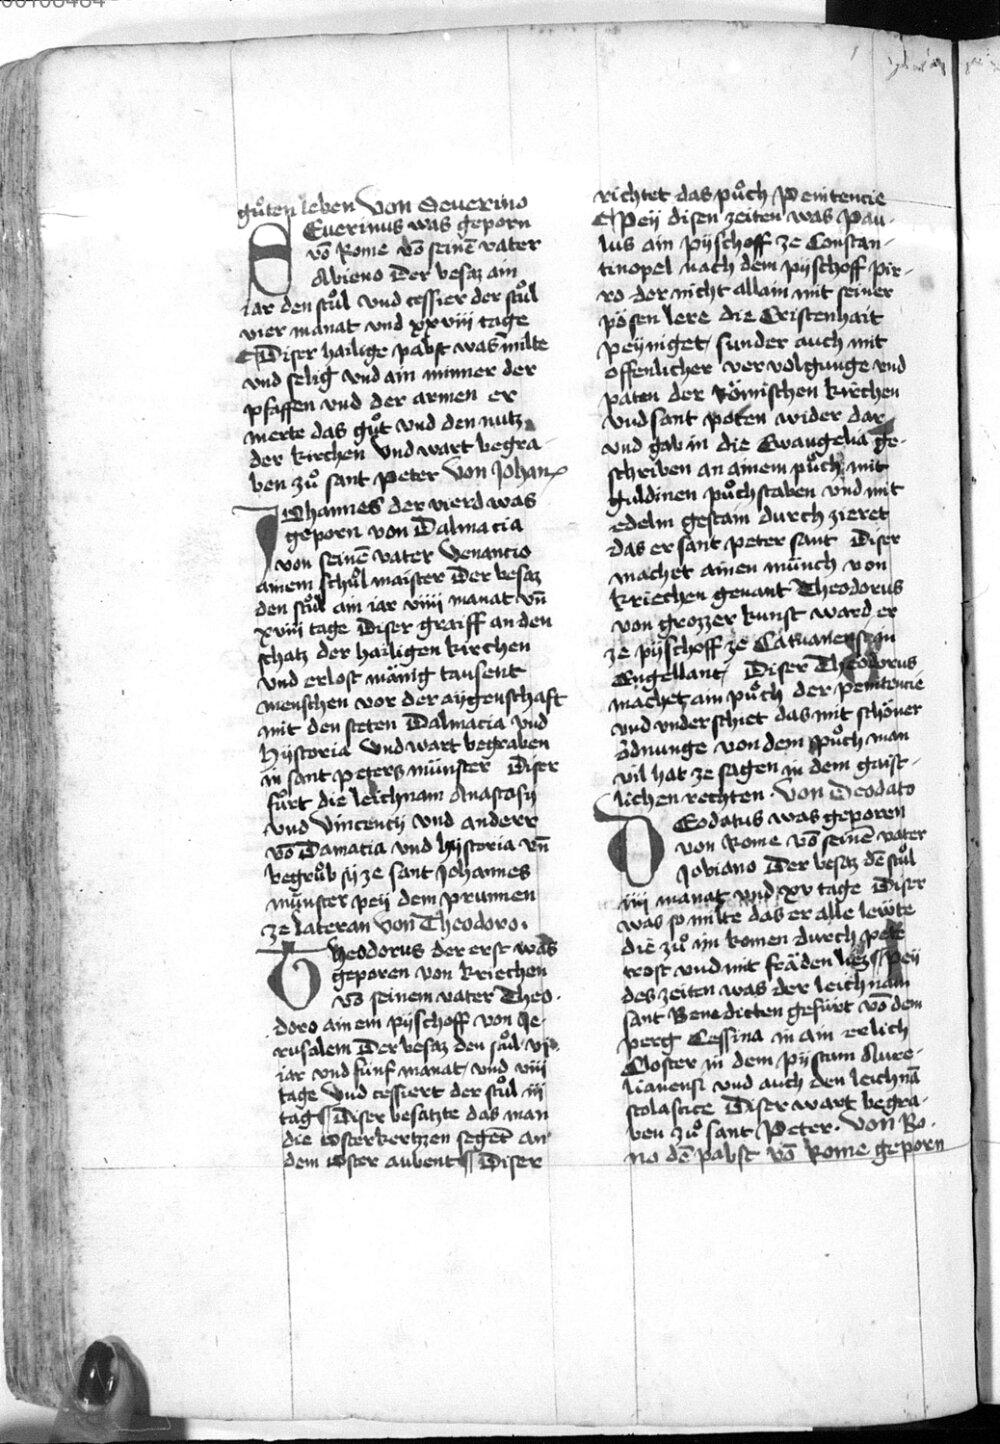 gůten leben Von Seuerino
SEuerinus was geporn
võ Rome võ seinē vater
Abieno Der besaz ain
iar den stůl vnd cessier der stůl
vier manat vnd xxviii tage
Diser hailige pabst was milte
vnd selig vnd ain minner der
pfaffen vnd der armen er
merte das gůt vnd den nutz
der kirchen Vnd wart begra-
ben zů sant Peter Von Johan
JOhannes der vierd was
geporn von Dalmacia
von seinē vater Venancio
ainem schůlmaister Der besaz
den stůl ain iar viiii manat vñ
xviii tage Diser graiff an den
schatz der hailigen kirchen
vnd erlost mänig tausent
menschen vor der aygenschaft
mit den steten Dalmacia vnd
Hystoria Vnd wart begraben
in sant peters münster Diser
fůrt die leichnam Anastasy
vnd Vincency vnd anderr
võ Damatia vnd hystoria vñ
begrůb sy ze sant Johannes
münster pey dem prunnen
ze Lateran Von Theodoro.
THeodorus der erst was
geporen von kriechen
võ seinem vater Theo-
doro ainem pyschoff von Je-
rusalem Der besaz den stůl vi
iar vnd fünf manat vnd viii
tage Vnd cessiert der stůl iii
tag Diser besatzte das man
die osterkertzen segēt an
dem oster aubent Diser
richtet das půch Penitencie
Pey disen zeiten was Pau-
lus ain pyschoff ze Constan-
tinopel nach dem pyschoff pir-
ro der nicht allain mit seiner
pösen lere die Cristenhait
peyniget sunder auch mit
offenlicher vervolgunge vnd
paten der Römischen kirchen
vnd sant poten wider dar
vnd gab in die Ewangelia ge-
schriben an ainem půch mit
guldinen půchstaben vnd mit
edelm gestain durch zieret
das er sant peter sant Diser
machet ainen münch von
kriechen genant Theodorus
von grozzer kunst ward er
ze pyschoff ze Catuanensem
Engellant Diser Theodorus
machet ain půch der penitencie
vnd vnderschiet das mit schöner
ödnunge von dem půch man
vil hat ze sagen in dem gaist-
lichen rechten. Von Deodato
DEodatus was geporen
von Rome võ seinē vater
Jobiano Der besaz dē stůl
iiii manat vnd xv tage Diser
was so milte das er alle lewte
die zů im komen durch pete
trost vnd mit fräden liez Pey
des zeiten was der leichnam
sant Benedicten gefůrt võ dem
perg Cessina in ain erlich
Closter in dem pystum Aure-
lianensi vnd auch den leichnā
scolastice Diser wart begra-
ben zů sant Peter. Von Bo-
no dē pabst võ Rome geporn